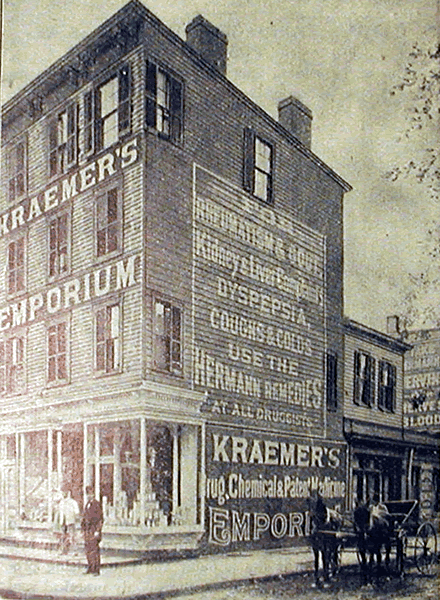 KRAEMER'S
EMPORIUM
RHEUMATISM & GOUT
Kidney & Liver Complaints
DYSPEPSIA,
COUGHS & COLDS
USE THE
HERMANN REMEDIES
AT ALL DRUGGISTS
KRAEMER'S
rug, Chemical & Patent Medicine
EMPORI
BLOOD